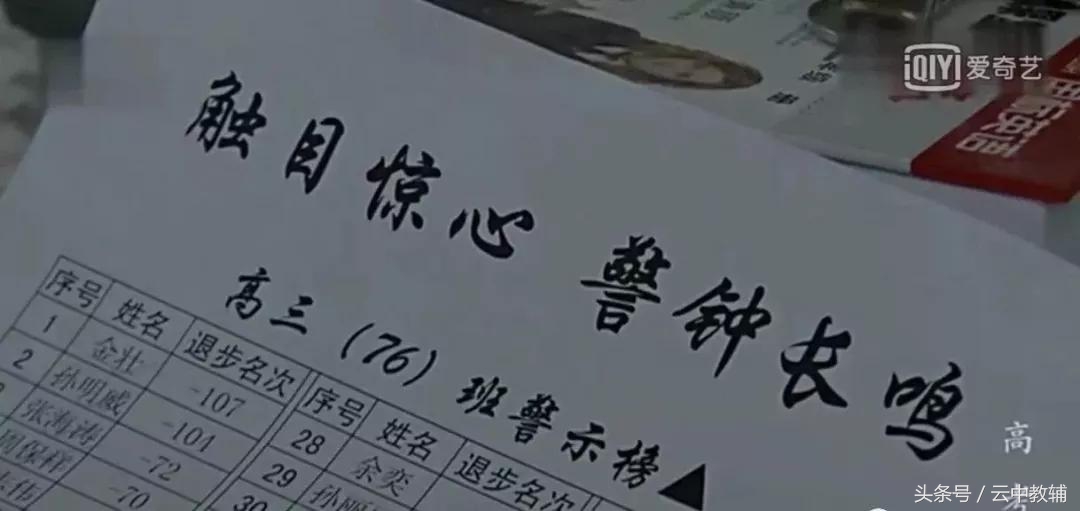 iQIYI 爱奇艺
触目惊心 警钟长鸣
高三（76）班警示榜▲
序号 姓名 退步名次 序号 姓名 退步名次
1 金壮 -107 28 余奕
2 孙明威 -104 29
张海涛 -72 30
周保样 -70
高考
头条号 / 云中教辅